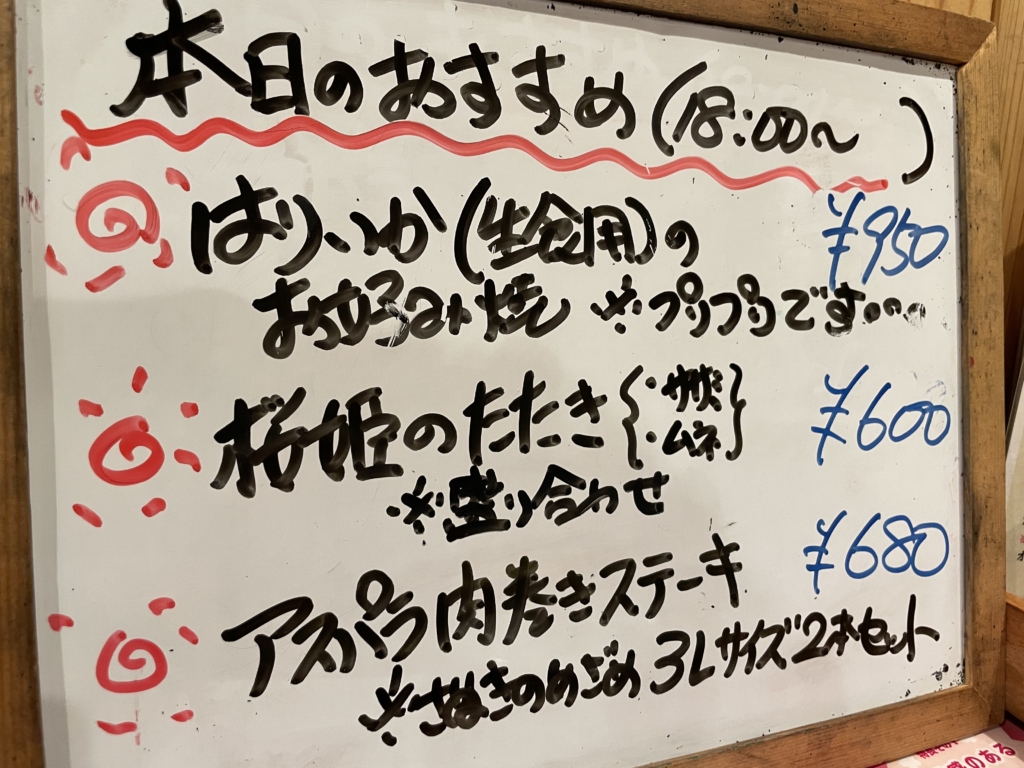 本日のおすすめ(18:00〜 )
はりいか(生食用)の ¥950
お好み焼 ※プリプリです…
桜姫のたたき{・ササミ ・ムネ} ¥600
※盛り合わせ
アスパラ肉巻きステーキ ¥680
※さぬきのめざめ 3Lサイズ2本セット
のある